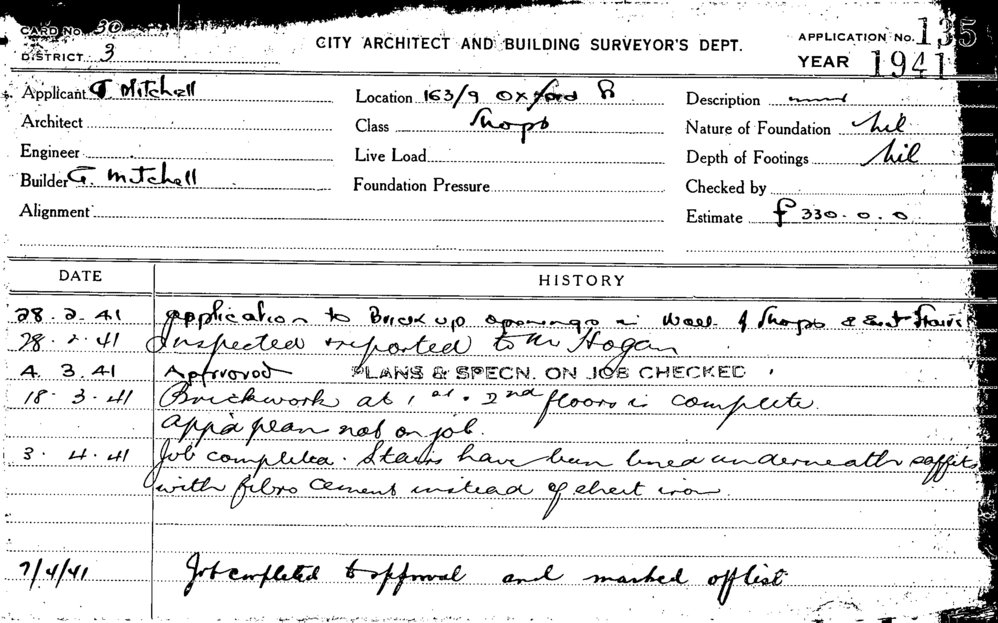 CARD No. 30
DISTRICT 3
CITY ARCHITECT AND BUILDING SURVEYOR'S DEPT.
APPLICATION No. 135
YEAR 1941
Applicant G Mitchell
Location 163/9 Oxford St
Description
Architect
Class Shops
Nature of Foundation Nil
Engineer
Live Load
Depth of Footings Nil
Builder G. Mitchell
Foundation Pressure
Checked by
Alignment
Estimate £ 330.0.0
DATE HISTORY
28.2.41 Application to Brick up openings in Wall of Shops &
28.2.41 Inspected & reported to Mr Hogan
4.3.41 Approved PLANS & SPECN. ON JOB CHECKED
18.3.41 Brickwork at 1st & 2nd floors is complete
app'd plan not on job.
3.4.41 Job completed. Stairs have been lined underneath soffits
with fibro cement instead of sheet iron.
7/4/41 Job completed to approval and marked off list